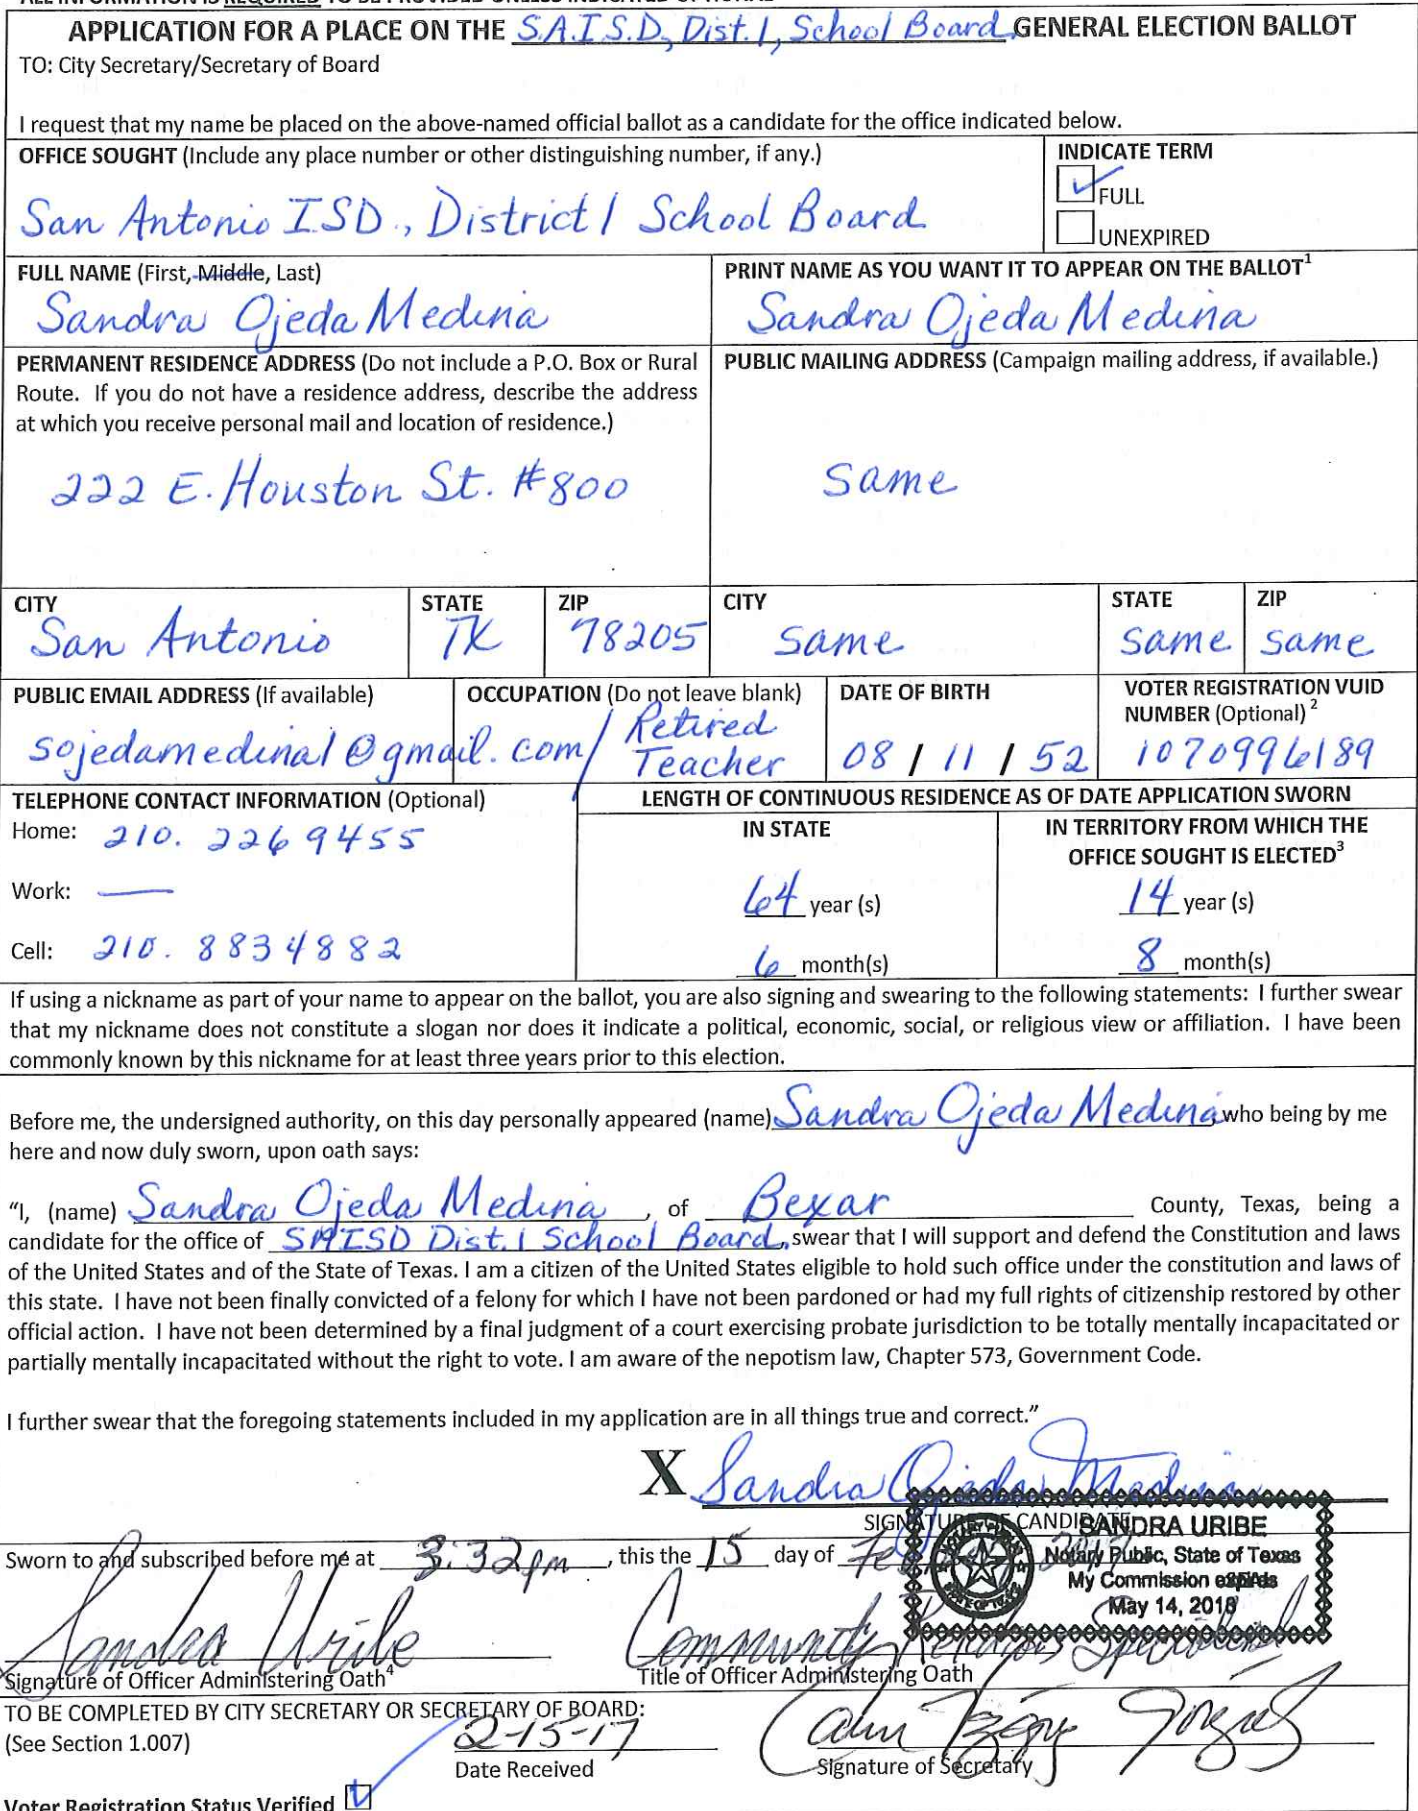 APPLICATION FOR A PLACE ON THE S.A.I.S.D, Dist. 1, School Board GENERAL ELECTION BALLOT
TO: City Secretary/Secretary of Board
I request that my name be placed on the above-named official ballot as a candidate for the office indicated below.
OFFICE SOUGHT (Include any place number or other distinguishing number, if any.)
San Antonio ISD., District 1 School Board
INDICATE TERM
FULL
UNEXPIRED
FULL NAME (First, Middle, Last)
Sandra Ojeda Medina
PRINT NAME AS YOU WANT IT TO APPEAR ON THE BALLOT1
Sandra Ojeda Medina
PERMANENT RESIDENCE ADDRESS (Do not include a P.O. Box or Rural
Route. If you do not have a residence address, describe the address
at which you receive personal mail and location of residence.)
222 E. Houston St. #800
PUBLIC MAILING ADDRESS (Campaign mailing address, if available.)
same
CITY
San Antonio
STATE
TX
ZIP
78205
CITY
same
STATE
same
ZIP
same
PUBLIC EMAIL ADDRESS (If available)
sojedamedina1@gmail.com/
OCCUPATION (Do not leave blank)
Retired
Teacher
DATE OF BIRTH
08 / 11 / 52
VOTER REGISTRATION VUID
NUMBER (Optional) 2
1070996189
TELEPHONE CONTACT INFORMATION (Optional)
Home: 210. 2269455
Work: —
Cell: 210. 8834882
LENGTH OF CONTINUOUS RESIDENCE AS OF DATE APPLICATION SWORN
IN STATE
64 year (s)
6 month(s)
IN TERRITORY FROM WHICH THE
OFFICE SOUGHT IS ELECTED3
14 year (s)
8 month(s)
If using a nickname as part of your name to appear on the ballot, you are also signing and swearing to the following statements: I further swear
that my nickname does not constitute a slogan nor does it indicate a political, economic, social, or religious view or affiliation. I have been
commonly known by this nickname for at least three years prior to this election.
Before me, the undersigned authority, on this day personally appeared (name) Sandra Ojeda Medina, who being by me
here and now duly sworn, upon oath says:
"I, (name) Sandra Ojeda Medina, of Bexar County, Texas, being a
candidate for the office of SAISD Dist. 1 School Board, swear that I will support and defend the Constitution and laws
of the United States and of the State of Texas. I am a citizen of the United States eligible to hold such office under the constitution and laws of
this state. I have not been finally convicted of a felony for which I have not been pardoned or had my full rights of citizenship restored by other
official action. I have not been determined by a final judgment of a court exercising probate jurisdiction to be totally mentally incapacitated or
partially mentally incapacitated without the right to vote. I am aware of the nepotism law, Chapter 573, Government Code.
I further swear that the foregoing statements included in my application are in all things true and correct."
X Sandra Ojeda Medina
SIGNATURE OF CANDIDATE
SANDRA URIBE
Notary Public, State of Texas
My Commission expires
May 14, 2018
Sworn to and subscribed before me at 3:32pm, this the 15 day of
Sandra Uribe
Signature of Officer Administering Oath4
Community Relations Specialist
Title of Officer Administering Oath
TO BE COMPLETED BY CITY SECRETARY OR SECRETARY OF BOARD:
(See Section 1.007)
2-15-17
Date Received
Signature of Secretary
Voter Registration Status Verified